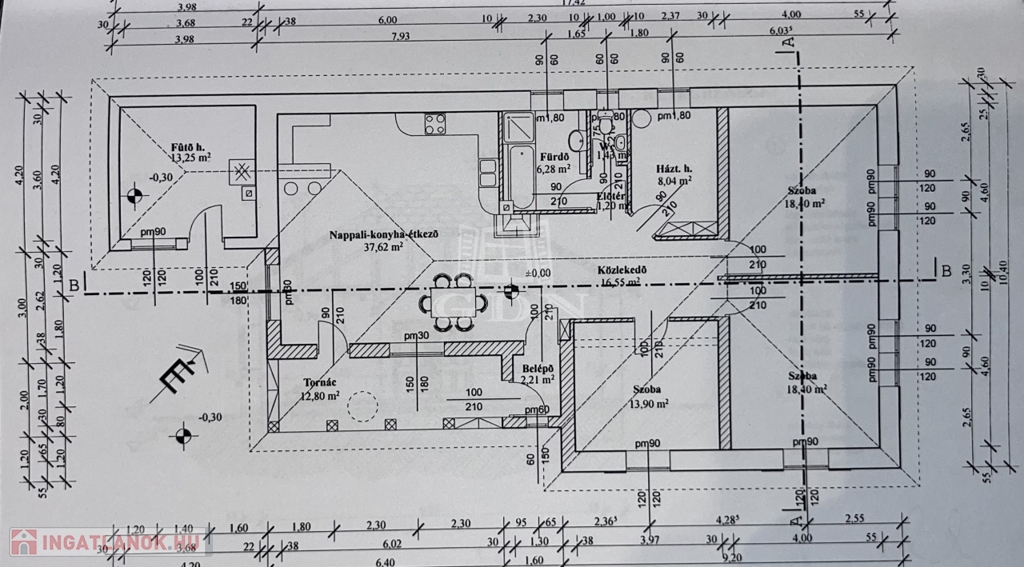 3,98
17,42
30
3,68
22
38
6.00
10
2,30
10
1,00
10
2,37
30
4,00
55
3,98
7,93
1,65
1,80
6.03⁵
90
60
60
60
90
60
A
pm1,80
pm1,80
Fûtõ h.
13,25 m²
-0,30
pm90
Fürdõ
6,28 m²
90
210
75
Elõtér
1,20 m²
90
210
Házt. h.
8,04 m²
90
210
Szoba
18,40 m²
pm90
90
120
pm90
90
120
Nappali-konyha-étkezõ
37,62 m²
±0,00
Közlekedõ
16,55 m²
100
210
100
210
B
B
120
120
100
210
150
180
GDN
90
210
pm30
150
180
100
210
100
210
Belépõ
2,21 m²
pm60
60
150
Tornác
12,80 m²
-0,30
É
100
210
Szoba
13,90 m²
pm90
120
120
Szoba
18,40 m²
pm90
120
120
pm90
90
120
pm90
90
120
A
4,20
30
3,60
4,20
3,00
30
2,62
38
1,20
1,80
2,00
1,70
30
1,20
80
1,20
65
55
1,20
30
25
2,65
4,60
3,30
10
10,40
4,60
2,65
55
1,20
1,40
1,60
1,80
2,30
2,30
95
65
2,36⁵
4,28⁵
2,55
30
3,68
22
38
6,02
30
1,30
38
3,97
30
4,00
55
4,20
6,40
1,60
9,20
INGATLANOK.HU